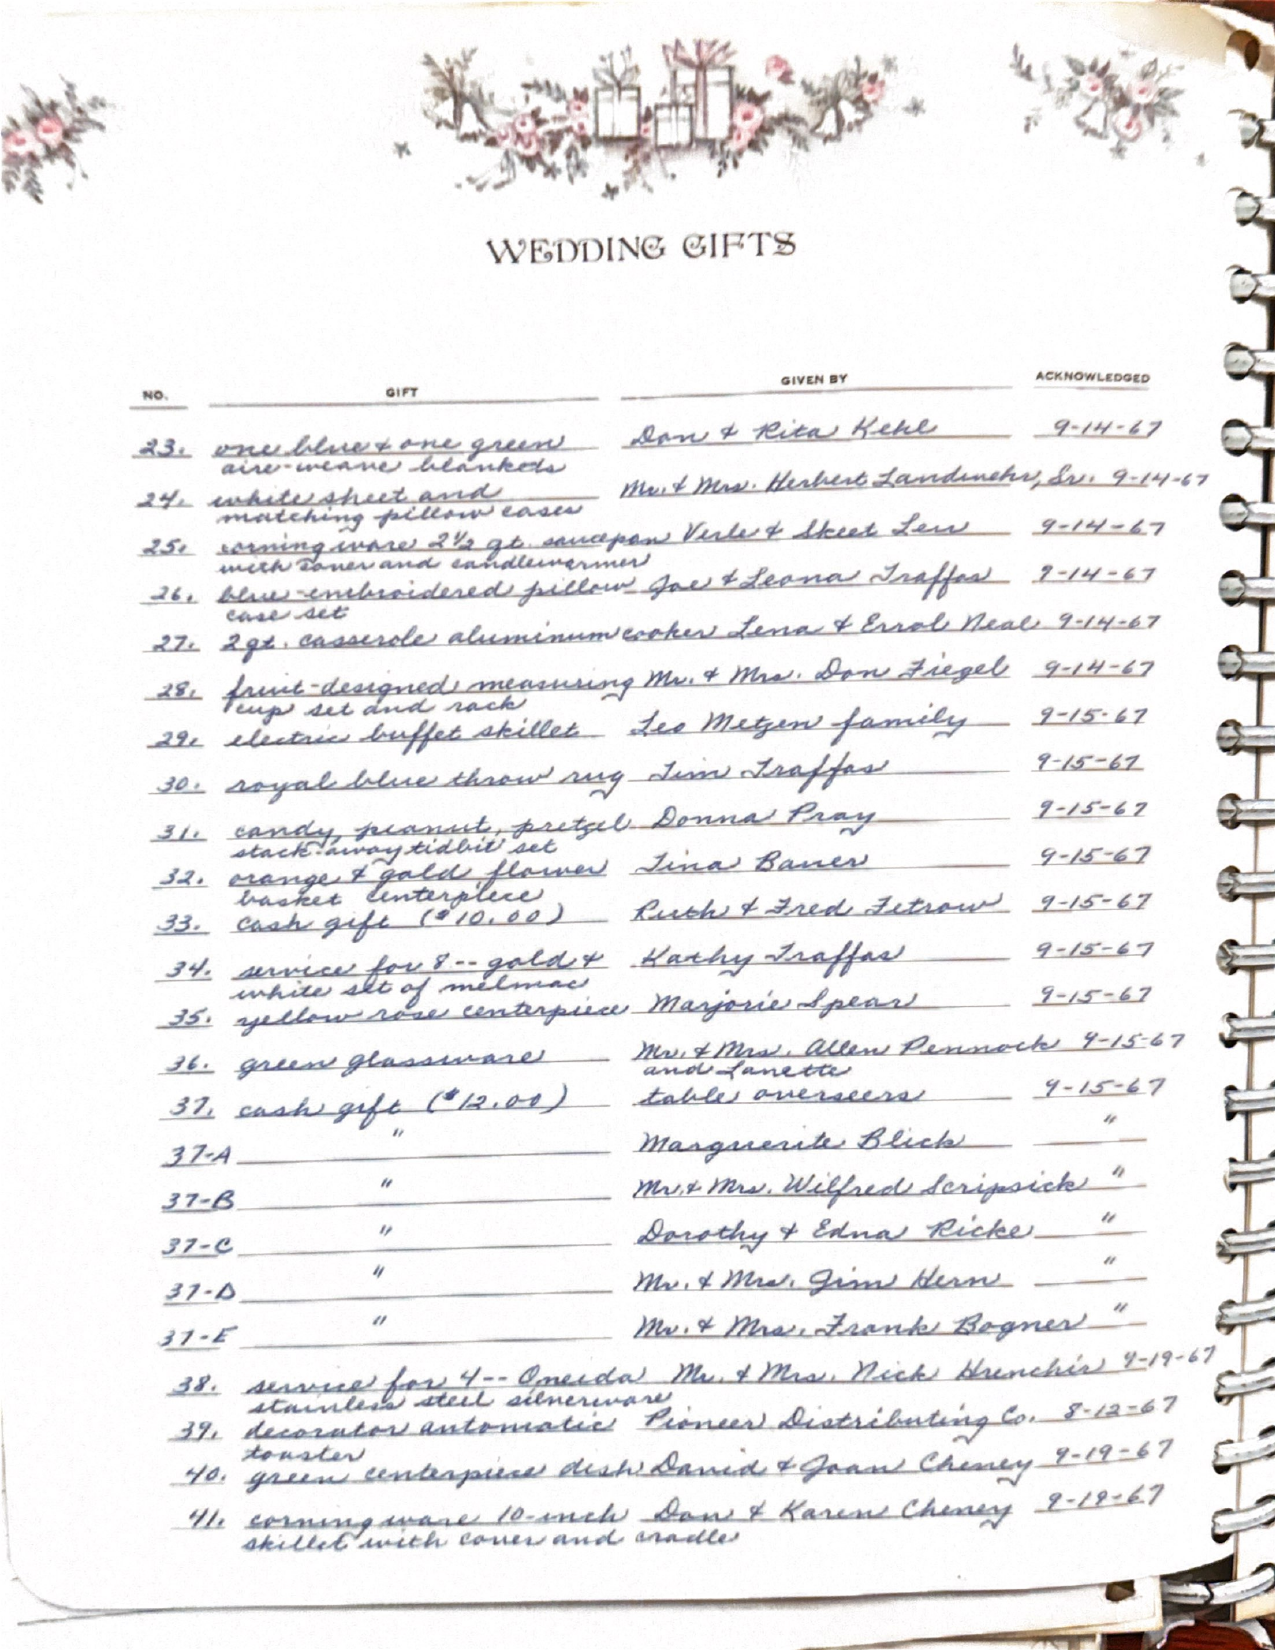 WEDDING GIFTS
NO. GIFT GIVEN BY ACKNOWLEDGED
23. one blue & one green Don & Rita Kehl 9-14-67
aire-weave blankets
24. white sheet and Mr. & Mrs. Herbert Landwehr, Sr. 9-14-67
matching pillow cases
25. corning ware 2 1/2 qt. saucepan Verle & Skeet Lew 9-14-67
with cover and candlewarmer
26. blue-embroidered pillow Joe & Leona Traffas 9-14-67
case set
27. 2 qt. casserole aluminum cooker Lena & Errol Neal 9-14-67
28. fruit-designed measuring Mr. & Mrs. Don Fiegel 9-14-67
cup set and rack
29. electric buffet skillet Leo Metzen family 9-15-67
30. royal blue throw rug Jim Traffas 9-15-67
31. candy, peanut, pretzel Donna Pray 9-15-67
stack-away tidbit set
32. orange & gold flower Tina Bauer 9-15-67
basket centerpiece
33. cash gift ($10.00) Ruth & Fred Fetrow 9-15-67
34. service for 8 -- gold & Kathy Traffas 9-15-67
white set of melmac
35. yellow rose centerpiece Marjorie Spear 9-15-67
36. green glassware Mr. & Mrs. Allen Pennock 9-15-67
and Lanette
37. cash gift ($12.00) table overseers 9-15-67
37-A " Marguerite Blick "
37-B " Mr. & Mrs. Wilfred Scripsick "
37-C " Dorothy & Edna Ricke "
37-D " Mr. & Mrs. Jim Hern "
37-E " Mr. & Mrs. Frank Bogner "
38. service for 4 -- Oneida Mr. & Mrs. Nick Hrenchir 9-19-67
stainless steel silverware
39. decorator automatic Pioneer Distributing Co. 8-12-67
toaster
40. green centerpiece dish David & Joan Cheney 9-19-67
41. corning ware 10-inch Don & Karen Cheney 9-19-67
skillet with cover and cradle